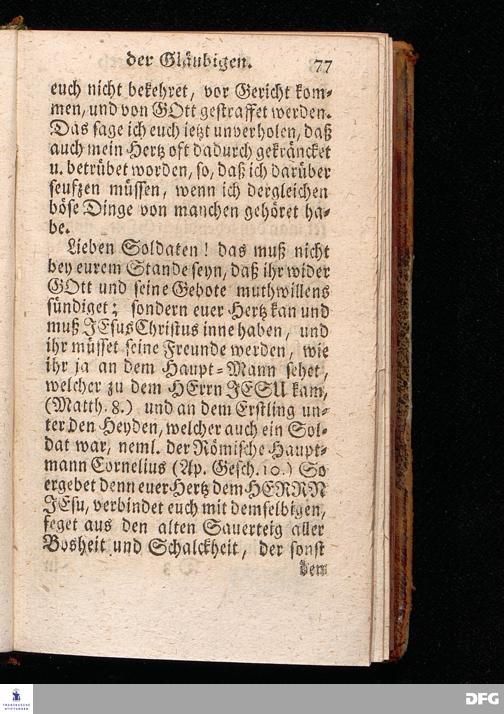 der Gläubigen. 77
euch nicht bekehret, vor Gericht kom-
men, und von GOtt gestraffet werden.
Das sage ich euch ietzt unverholen, daß
auch mein Hertz oft dadurch gekräncket
u. betrübet worden, so, daß ich darüber
seufzen müssen, wenn ich dergleichen
böse Dinge von manchen gehöret ha-
be.
Lieben Soldaten! das muß nicht
bey eurem Stande seyn, daß ihr wider
GOtt und seine Gebote muthwillens
sündiget; sondern euer Hertz kan und
muß JEsus Christus inne haben, und
ihr müsset seine Freunde werden, wie
ihr ja an dem Haupt-Mann sehet,
welcher zu dem HErrn JESU kam,
(Matth. 8.) und an dem Erstling un-
ter den Heyden, welcher auch ein Sol-
dat war, neml. der Römische Haupt-
mann Cornelius (Ap. Gesch. 10.) So
ergebet denn euer Hertz dem HERRN
JEsu, verbindet euch mit demselbigen,
feget aus den alten Sauerteig aller
Bosheit und Schalckheit, der sonst
dem
FRANCKESCHE
STIFTUNGEN
DFG